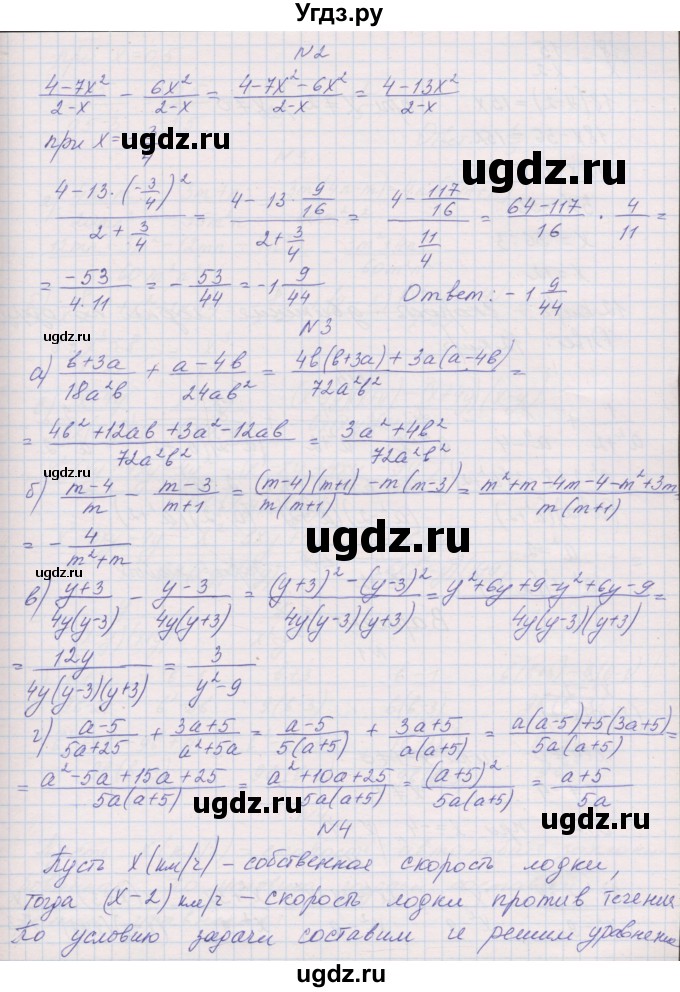 Угдз.ру
N2
(4-7x²)/(2-x) - 6x²/(2-x) = (4-7x²-6x²)/(2-x) = (4-13x²)/(2-x)
при x=-3/4
ugdz.ru
ugdz.ru
(4-13·(-3/4)²)/(2+3/4) = (4-13·9/16)/(2+3/4) = (4-117/16)/(11/4) = (64-117)/16 · 4/11 =
= -53/(4·11) = -53/44 = -1 9/44 Ответ: -1 9/44
ugdz.ru
N3
а) (b+3a)/(18a²b) + (a-4b)/(24ab²) = (4b(b+3a)+3a(a-4b))/(72a²b²) =
= (4b²+12ab+3a²-12ab)/(72a²b²) = (3a²+4b²)/(72a²b²)
ugdz.ru
б) (m-4)/m - (m-3)/(m+1) = ((m-4)(m+1)-m(m-3))/(m(m+1)) = (m²+m-4m-4-m²+3m)/(m(m+1))
ugdz.ru
= -4/(m²+m)
в) (y+3)/(4y(y-3)) - (y-3)/(4y(y+3)) = ((y+3)²-(y-3)²)/(4y(y-3)(y+3)) = (y²+6y+9-y²+6y-9)/(4y(y-3)(y+3)) =
ugdz.ru
= 12y/(4y(y-3)(y+3)) = 3/(y²-9)
г) (a-5)/(5a+25) + (3a+5)/(a²+5a) = (a-5)/(5(a+5)) + (3a+5)/(a(a+5)) = (a(a-5)+5(3a+5))/(5a(a+5)) =
= (a²-5a+15a+25)/(5a(a+5)) = (a²+10a+25)/(5a(a+5)) = (a+5)²/(5a(a+5)) = (a+5)/5a
ugdz.ru
ugdz.ru
N4
Пусть x(км/ч) - собственная скорость лодки,
ugdz.ru
тогда (x-2) км/ч - скорость лодки против течени
По условию задачи составим и решим уравнение
ugdz.ru